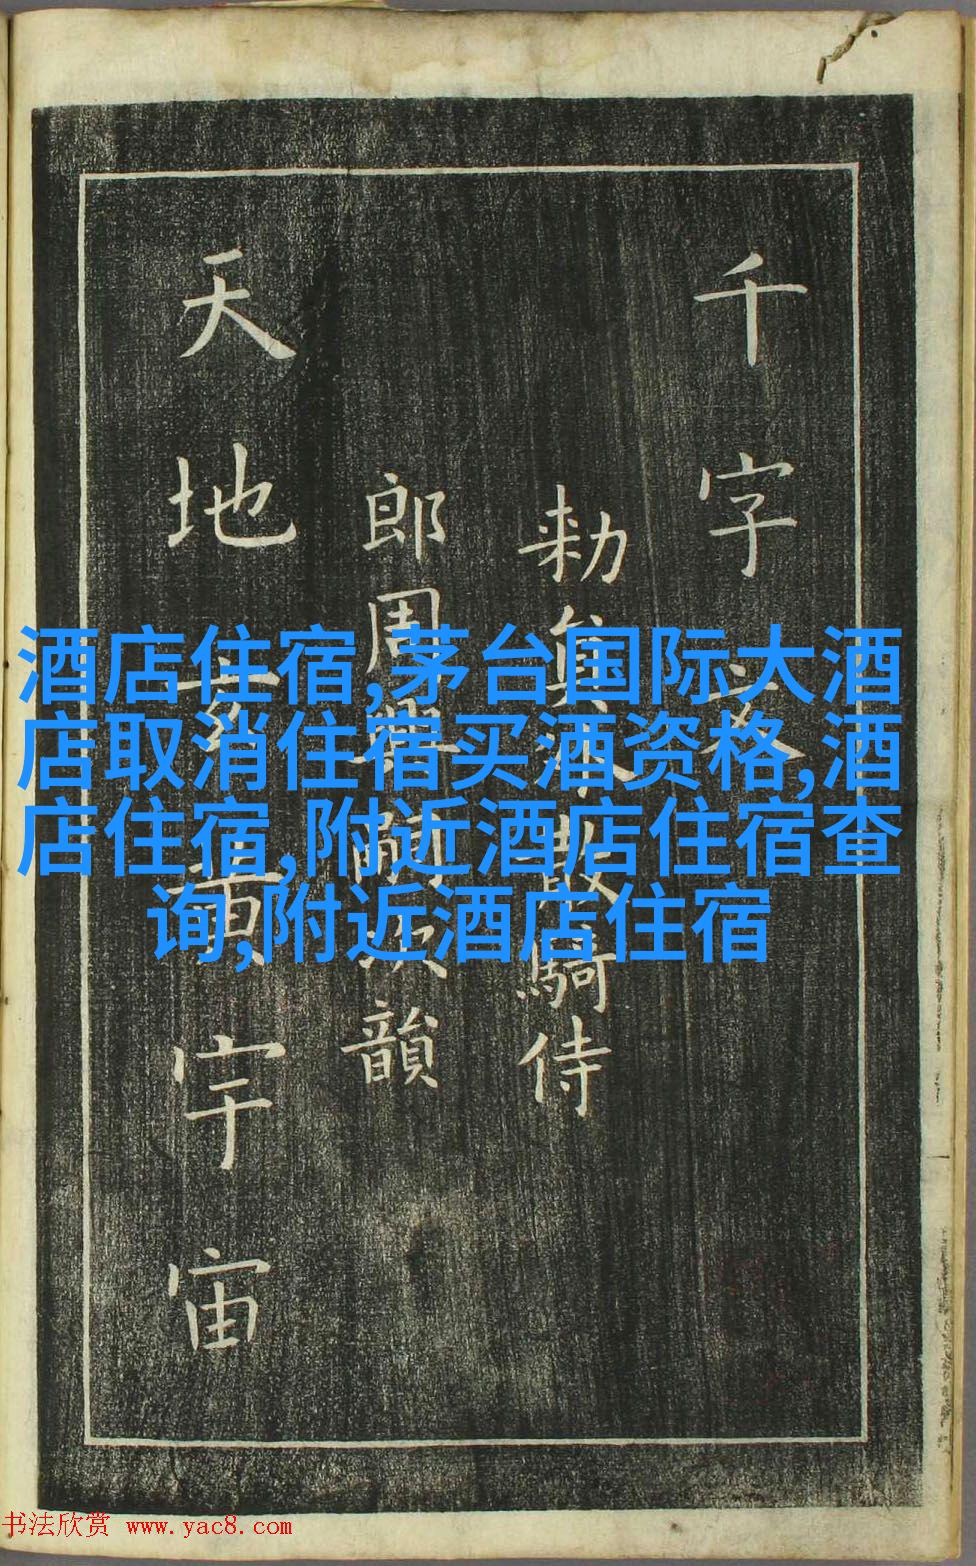 千字文
勅員外散騎侍
郎周興嗣次韻
天地玄黃宇宙
酒店住宿,茅台国际大酒
店取消住宿买酒资格,酒
店住宿,附近酒店住宿查
询,附近酒店住宿
书法欣赏 www.yac8.com